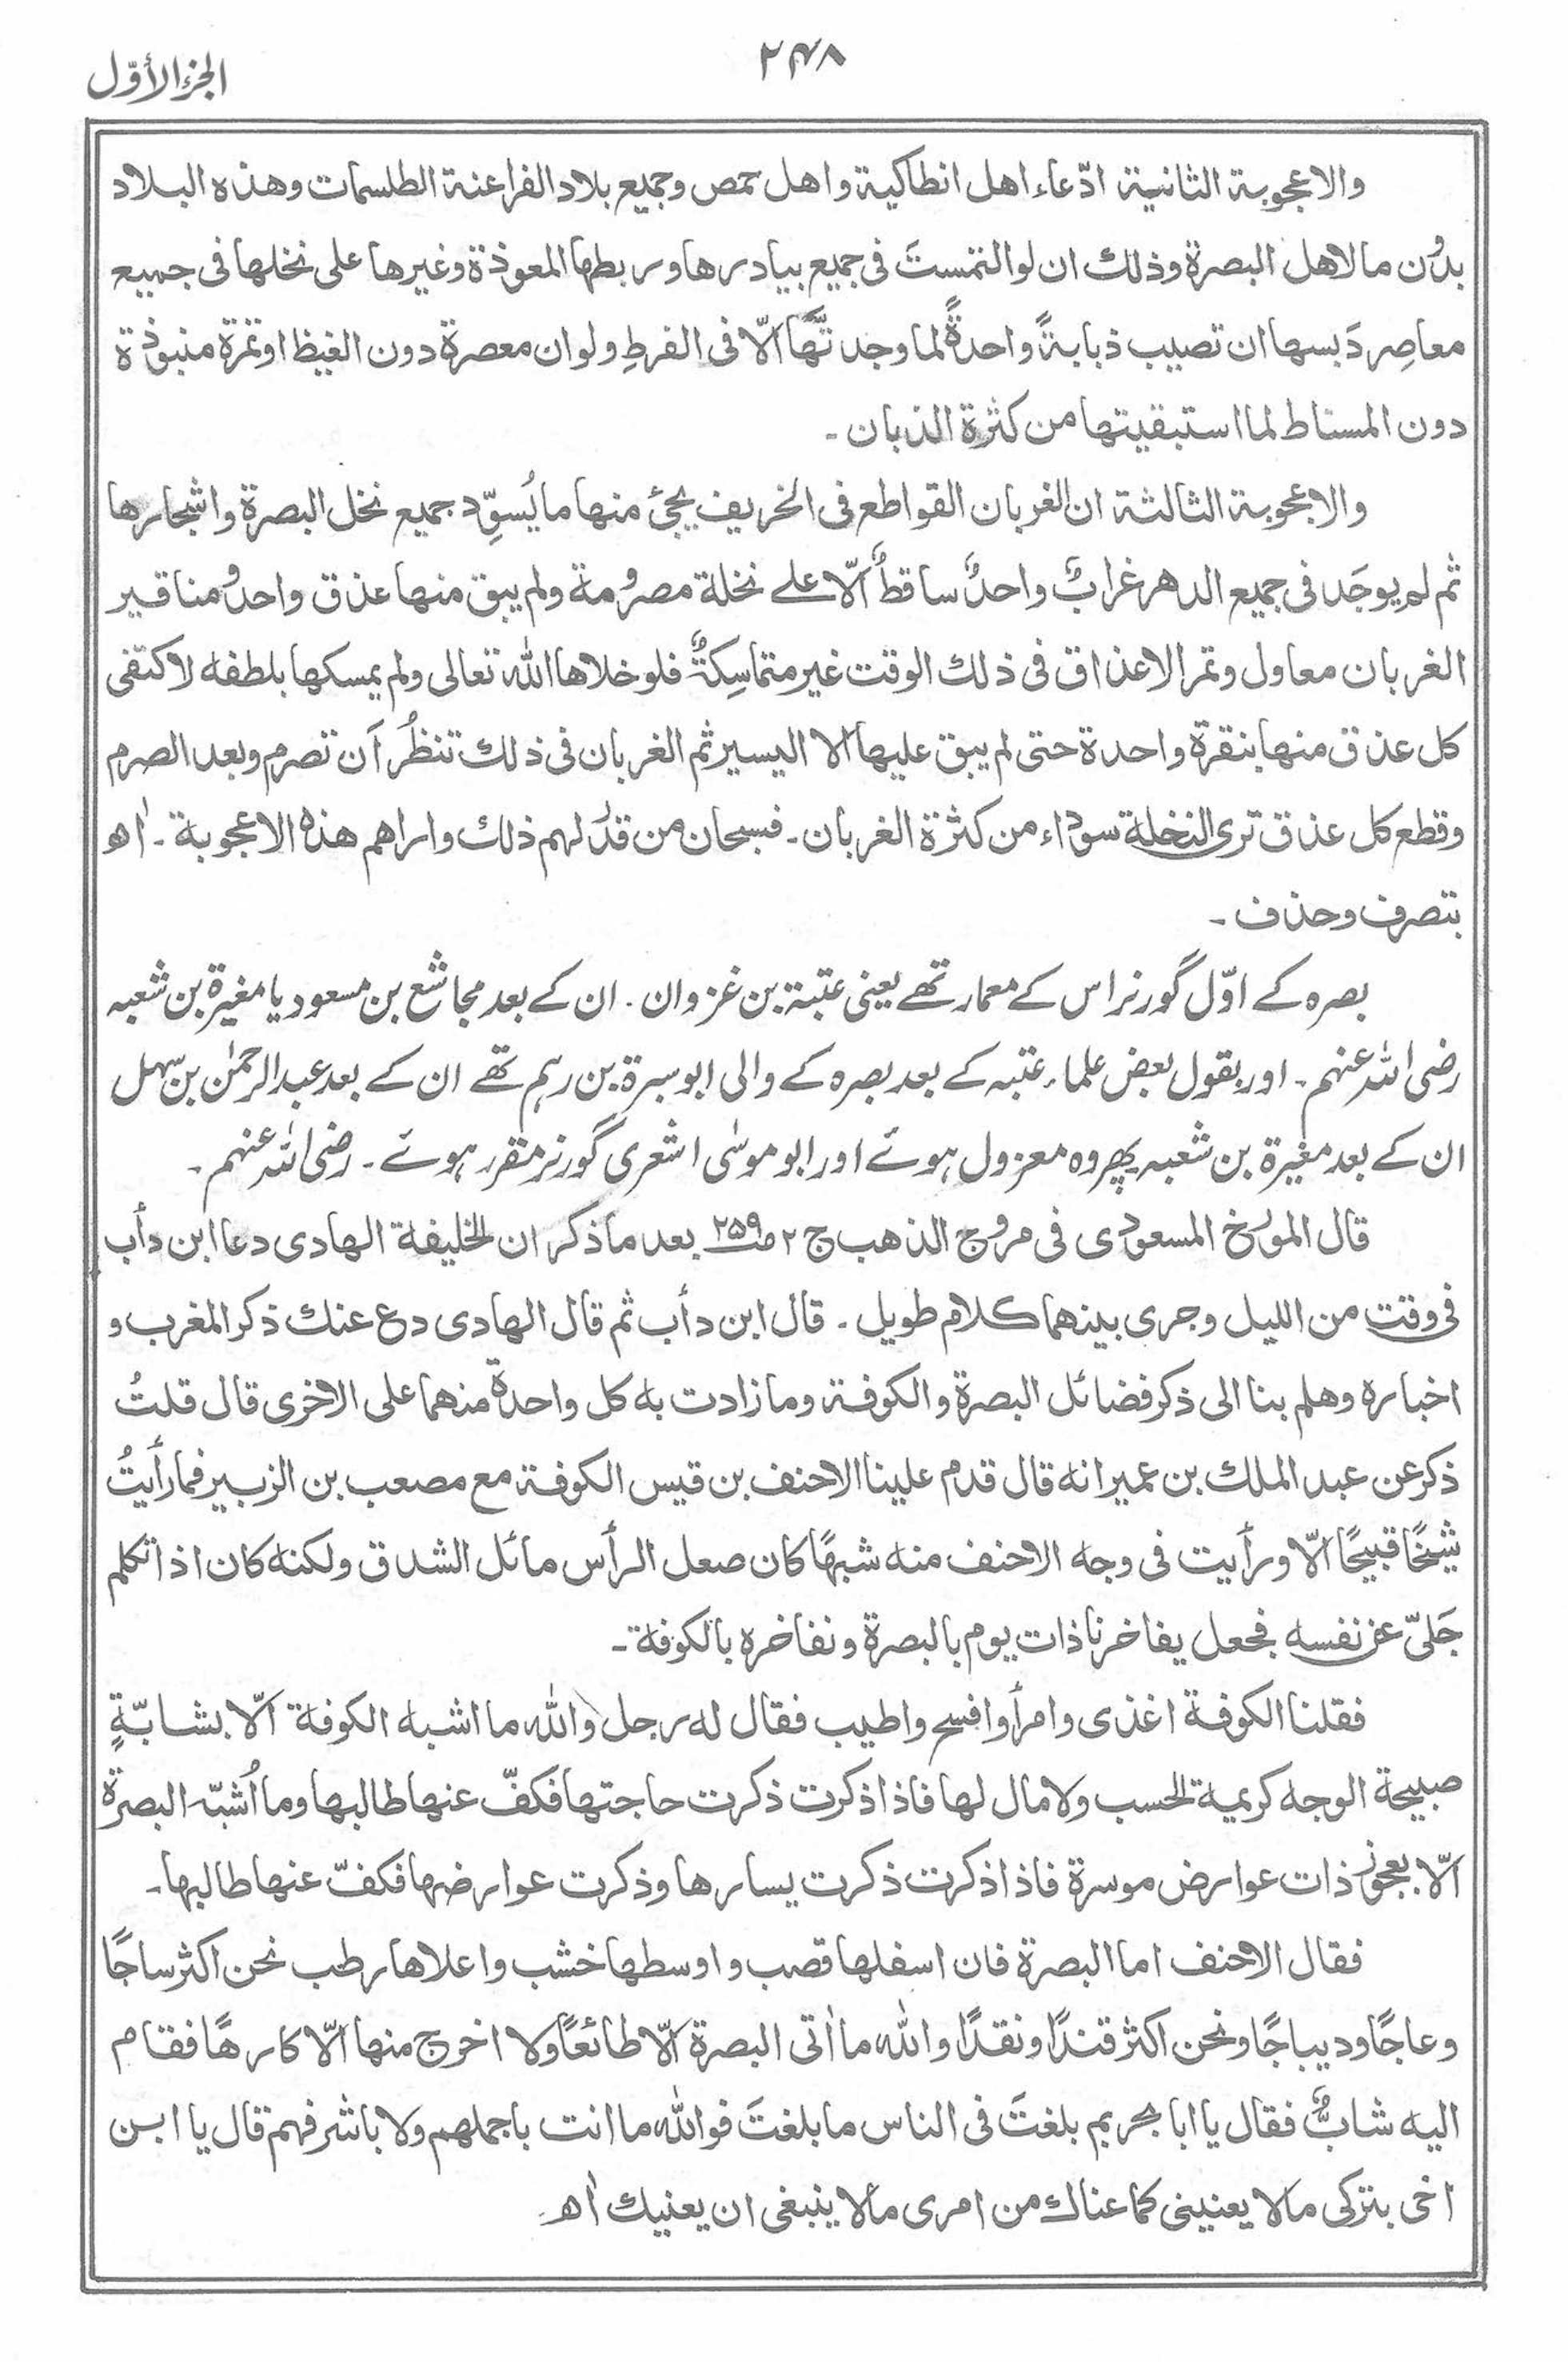 ۲۴۸
الجزء الأوّل
والاعجوبة الثانية ادّعاء اهل انطاكية واهل حمص وجميع بلاد الفراعنة الطلسمات وهذه البلاد
بدُون ما لاهل البصرة وذلك ان لو التمستَ فى جميع بيادرها وربطها المعوذة وغيرها على نخلها فى جميع
معاصِر دَبسها ان تصيب ذبابةً واحدةً لما وجدتَّها الّا فى الفرطِ ولو ان معصرة دون الغيظ او تمرة منبوذة
دون المسناط لما استبقيتها من كثرة الذبان ۔
والاعجوبة الثالثة ان الغربان القواطع فى الخريف يجئ منها ما يُسوِّد جميع نخل البصرة واشجارها
ثم لم يوجَد فى جميع الدهر غرابٌ واحدٌ ساقطٌ الّا علے نخلة مصرُومة ولم يبق منها عذق واحد ومناقير
الغربان معاول وتمر الاعذاق فى ذلك الوقت غير متماسِكةٌ فلو خلاها الله تعالى ولم يمسكها بلطفه لاكتفى
كل عذق منها بنقرة واحدة حتى لم يبق عليها الا اليسير ثم الغربان فى ذلك تنظُر اَن تصرم وبعد الصرم
وقطع كل عذق ترى النخلة سوداء من كثرة الغربان ۔ فسبحان من قدّر لهم ذلك واراهم هذه الاعجوبة ۔ اٰه
بتصرف وحذف ۔
بصرہ کے اوّل گورنر اس کے معمار تھے یعنی عتبة بن غزوان ۔ ان کے بعد مجاشع بن مسعود یا مغیرة بن شعبہ
رضی اللہ عنہم ۔ اور بقول بعض علماء عتبہ کے بعد بصرہ کے والی ابو سبرة بن رہم تھے ان کے بعد عبدالرحمٰن بن سہل
ان کے بعد مغیرة بن شعبہ پھر وہ معزول ہوئے اور ابو موسٰی اشعری گورنر مقرر ہوئے ۔ رضی اللہ عنہم ۔
قال المؤرخ المسعودى فى مروج الذهب ج ۲ ص ۲۵۹ بعد ما ذكر ان الخليفة الهادى دعا ابن دأب
فى وقت من الليل وجرى بينهما كلام طويل ۔ قال ابن دأب ثم قال الهادى دع عنك ذكر المغرب و
اخباره وهلم بنا الى ذكر فضائل البصرة والكوفة وما زادت به كل واحدة منهما على الاخرى قال قلتُ
ذكر عن عبد الملك بن عمير انه قال قدم علينا الاحنف بن قيس الكوفة مع مصعب بن الزبير فما رأيتُ
شيخًا قبيحًا الّا ورأيت فى وجه الاحنف منه شبهًا كان صعل الرأس مائل الشدق ولكنه كان اذا تكلم
جَلىّ عن نفسه فجعل يفاخرنا ذات يوم بالبصرة ونفاخره بالكوفة ۔
فقلنا الكوفة اغذى وامرأ وافسح واطيب فقال له رجل والله ما اشبه الكوفة الّا بشابّةٍ
صبيحة الوجه كريمة الحسب ولا مال لها فاذا ذكرت ذكرت حاجتها فكفّ عنها طالبها وما اُشبّه البصرة
الّا بعجوز ذات عوارض موسرة فاذا ذكرت ذكرت يسارها وذكرت عوارضها فكفّ عنها طالبها ۔
فقال الاحنف اما البصرة فان اسفلها قصب واوسطها خشب واعلاها رطب نحن اكثر ساجًا
وعاجًا وديباجًا ونحن اكثر قندًا ونقدًا والله ما اٰتى البصرة الّا طائعًا ولا اخرج منها الّا كارهًا فقام
اليه شابٌّ فقال يا ابا بحر بم بلغتَ فى الناس ما بلغتَ فوالله ما انت باجملهم ولا باشرفهم قال يا ابن
اخى بتركى ما لا يعنينى كما عناك من امرى ما لا ينبغى ان يعنيك اٰه